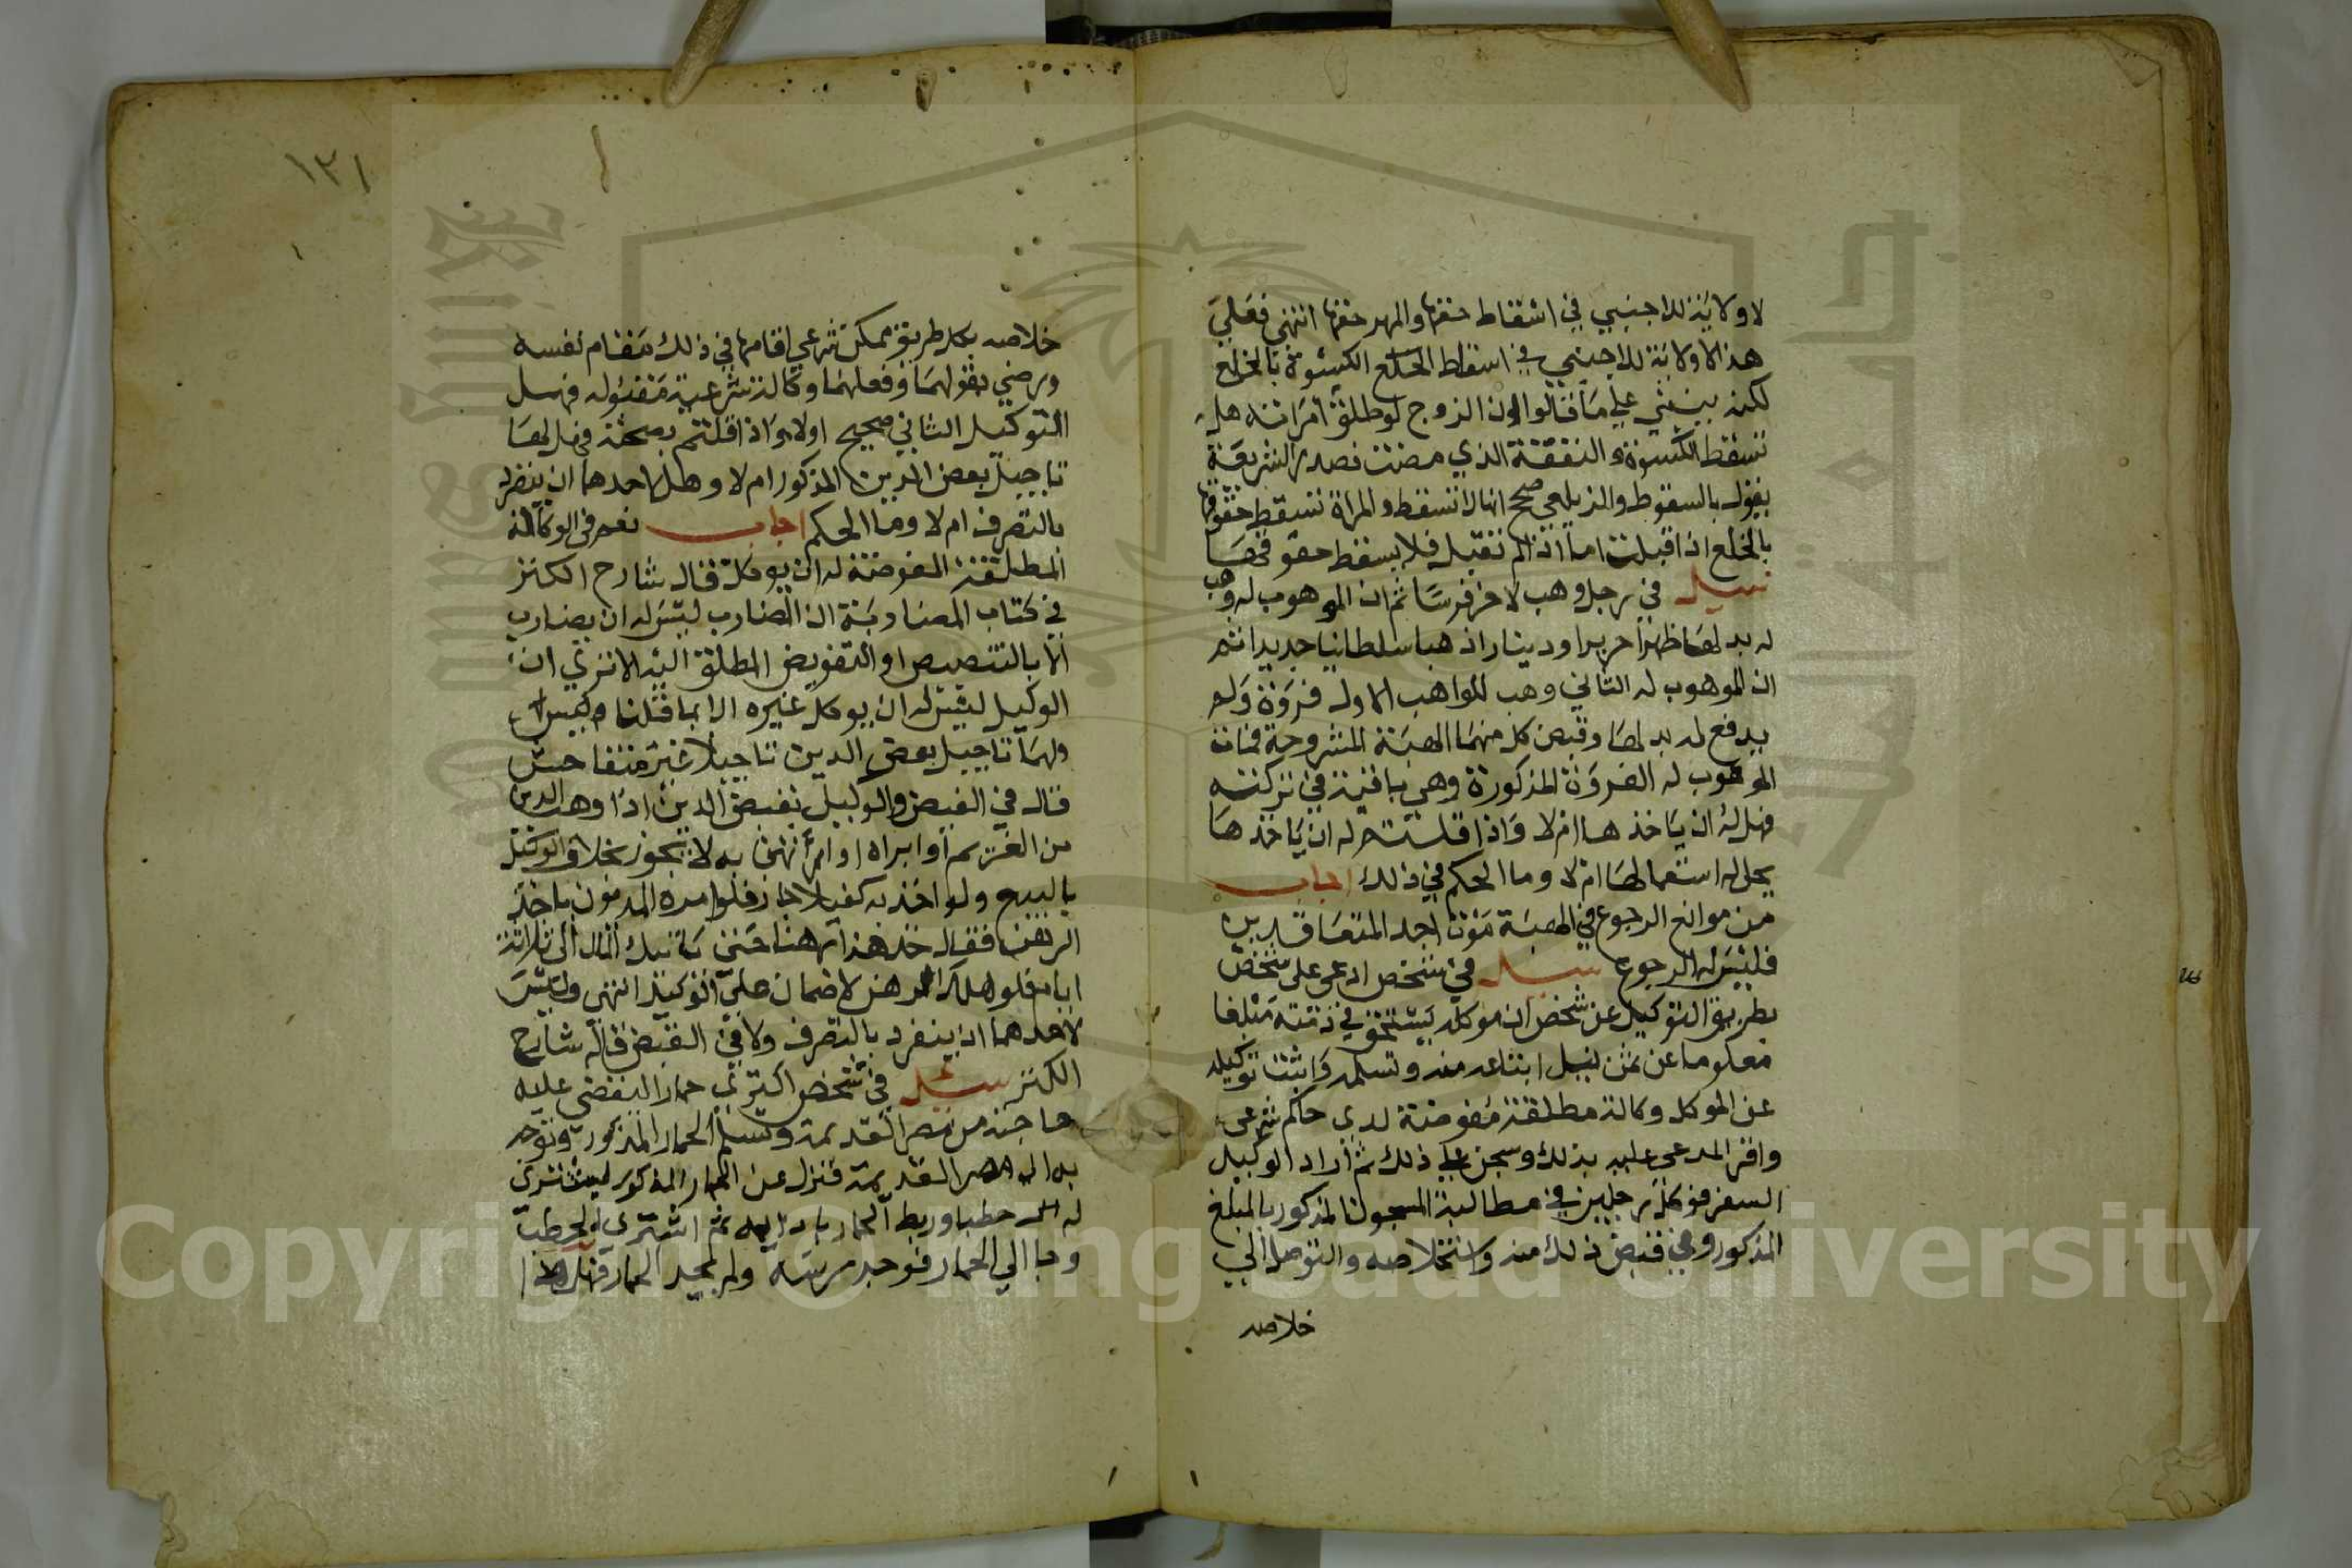 لا ولاية للاجنبي في اسقاط حقها والمهر حقها انتهى فعلى
هذا لا ولاية للاجنبي في اسقاط الخلع الكسوة بالخلع
لكن يبتني على ما قالوا ان الزوج لو طلق امراته هل
تسقط الكسوة والنفقة الذي مضت فصدر الشريعة
يقول بالسقوط والزيلعي صحح انها لا تسقط والمراة تسقط حقوقها
بالخلع اذا قبلت اما اذا لم تقبل فلا يسقط حقوقها
سيل في رجل وهب لاخر فرسا ثم ان الموهوب له وهب
له بدلها ظهرا حريرا ودينارا ذهبا سلطانيا جديدا ثم
ان الموهوب له الثاني وهب للواهب الاول فروة ولم
يدفع له بدلها وقبض كل منهما الهبة المشروحة فمات
الموهوب له الفروة المذكورة وهي باقية في تركته
فهل له ان ياخذها ام لا واذا قلتم له ان ياخذها
يحل له استعمالها ام لا وما الحكم في ذلك اجاب
من موانع الرجوع في الهبة موت احد المتعاقدين
فليس له الرجوع سيل في شخص ادعى على شخص
بطريق التوكيل عن شخص ان موكله يستحق في ذمته مبلغا
معلوما عن ثمن نيل ابتاعه منه وتسلمه واثبت توكيله
عن الموكل وكالة مطلقة مفوضة لدى حاكم شرعي
واقر المدعى عليه بذلك وسجن على ذلك ثم اراد الوكيل
السفر فوكل رجلين في مطالبة المسجون المذكور بالمبلغ
المذكور وفي قبض ذلك منه واستخلاصه والتوصل الي
خلاصه
١٣١
خلاصه بكل طريق ممكن شرعي اقامها في ذلك مقام نفسه
ورضي بقولهما وفعلهما وكالة شرعية مقبوله فهل
التوكيل الثاني صحيح اولا واذا قلتم بصحته فهل لهما
تاجيل بعض الدين المذكور ام لا وهل لاحدهما ان ينفرد
بالتصرف ام لا وما الحكم اجاب نعم في الوكالة
المطلقة المفوضة له ان يوكل قال شارح الكنز
في كتاب المضاربة ان المضارب ليس له ان يضارب
الا بالتنصيص او التفويض المطلق اليه الا ترى ان
الوكيل ليس له ان يوكل غيره الا بما قلنا
ولهما تاجيل بعض الدين تاجيلا غير متفاحش
قال في الفيض والوكيل بقبض الدين اذا وهب الدين
من الغريم او ابراه او ارتهن به لا يجوز بخلاف الوكيل
بالبيع ولو اخذ به كفيلا جاز فلو امره المديون باخذ
الرهن فقال خذ هذا رهنا حتى تاتيك المال الى ثلاثة
ايام فلو هلك الرهن لا ضمان على الوكيل انتهى وليس
لاحدهما ان ينفرد بالتصرف ولا في القبض قاله شارح
الكنز سيل في شخص اكترى حمارا ليقضي عليه
حاجته من مصر القديمة وتسلم الحمار المذكور وتوجه
به الى مصر القديمة فنزل عن الحمار المذكور ليشترى
له حطبا وربط الحمار ثم اشترى له الحطب
وجا الي الحمار فوجد رسته ولم يجد الحمار فهل